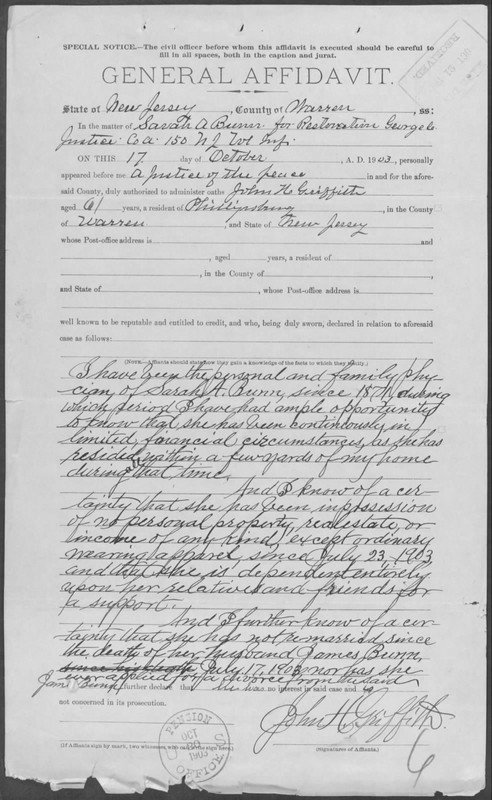 SPECIAL NOTICE.—The civil officer before whom this affidavit is executed should be careful to
fill in all spaces, both in the caption and jurat.
GENERAL AFFIDAVIT.
State of New Jersey, County of Warren, ss:
In the matter of Sarah A Bunn for Restoration George
Justice Co A 150 N J Vol Inf.
ON THIS 17 day of October, A. D. 1903, personally
appeared before me A Justice of the peace in and for the afore-
said County, duly authorized to administer oaths John H Griffith
aged 61 years, a resident of Phillipsburg, in the County
of Warren, and State of New Jersey
whose Post-office address is and
, aged years, a resident of
, in the County of ,
and State of , whose Post-office address is
well known to be reputable and entitled to credit, and who, being duly sworn, declared in relation to aforesaid
case as follows:
(NOTE.—Affiants should state how they gain a knowledge of the facts to which they testify.)
I have been the personal and family phy-
cian, of Sarah A. Bunn, since 1871, during
which period I have had ample opportunity
to know that she has been continously in
limited, financial circumstances, as she has
resided within a few yards of my home
during all that time.
And I know of a cer-
tainty that she has been in possession
of no personal property, real estate, or
income of any kind, except ordinary
wearing apparel, since July 23, 1903
and that she is dependent entirely
upon her relatives and friends for
a support.
And I further know of a cer-
tainty that she has not remarried since
the death of her husband James Bunn,
since his death July 17, 1903 nor has she
ever applied for a divorce from the said
James Bunn further declare that he has no interest in said case and is
not concerned in its prosecution.
John H Griffith
(If Affiants sign by mark, two witnesses who can write sign here.)
(Signatures of Affiants.)
PENSION OFFICE
OCT
1903
U S